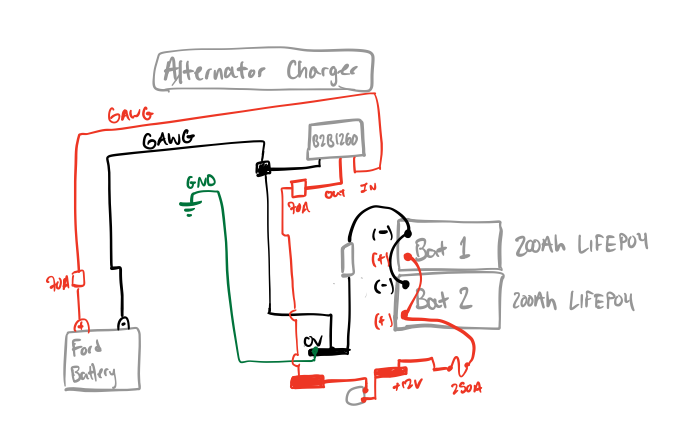 Alternator Charger
6AWG
6AWG
B2B1260
GND
70A
OUT
IN
(-)
Bat 1
200Ah LIFEPO4
(+)
70A
(-)
Bat 2
200Ah LIFEPO4
(+)
+
-
0V
Ford
Battery
+12V
250A